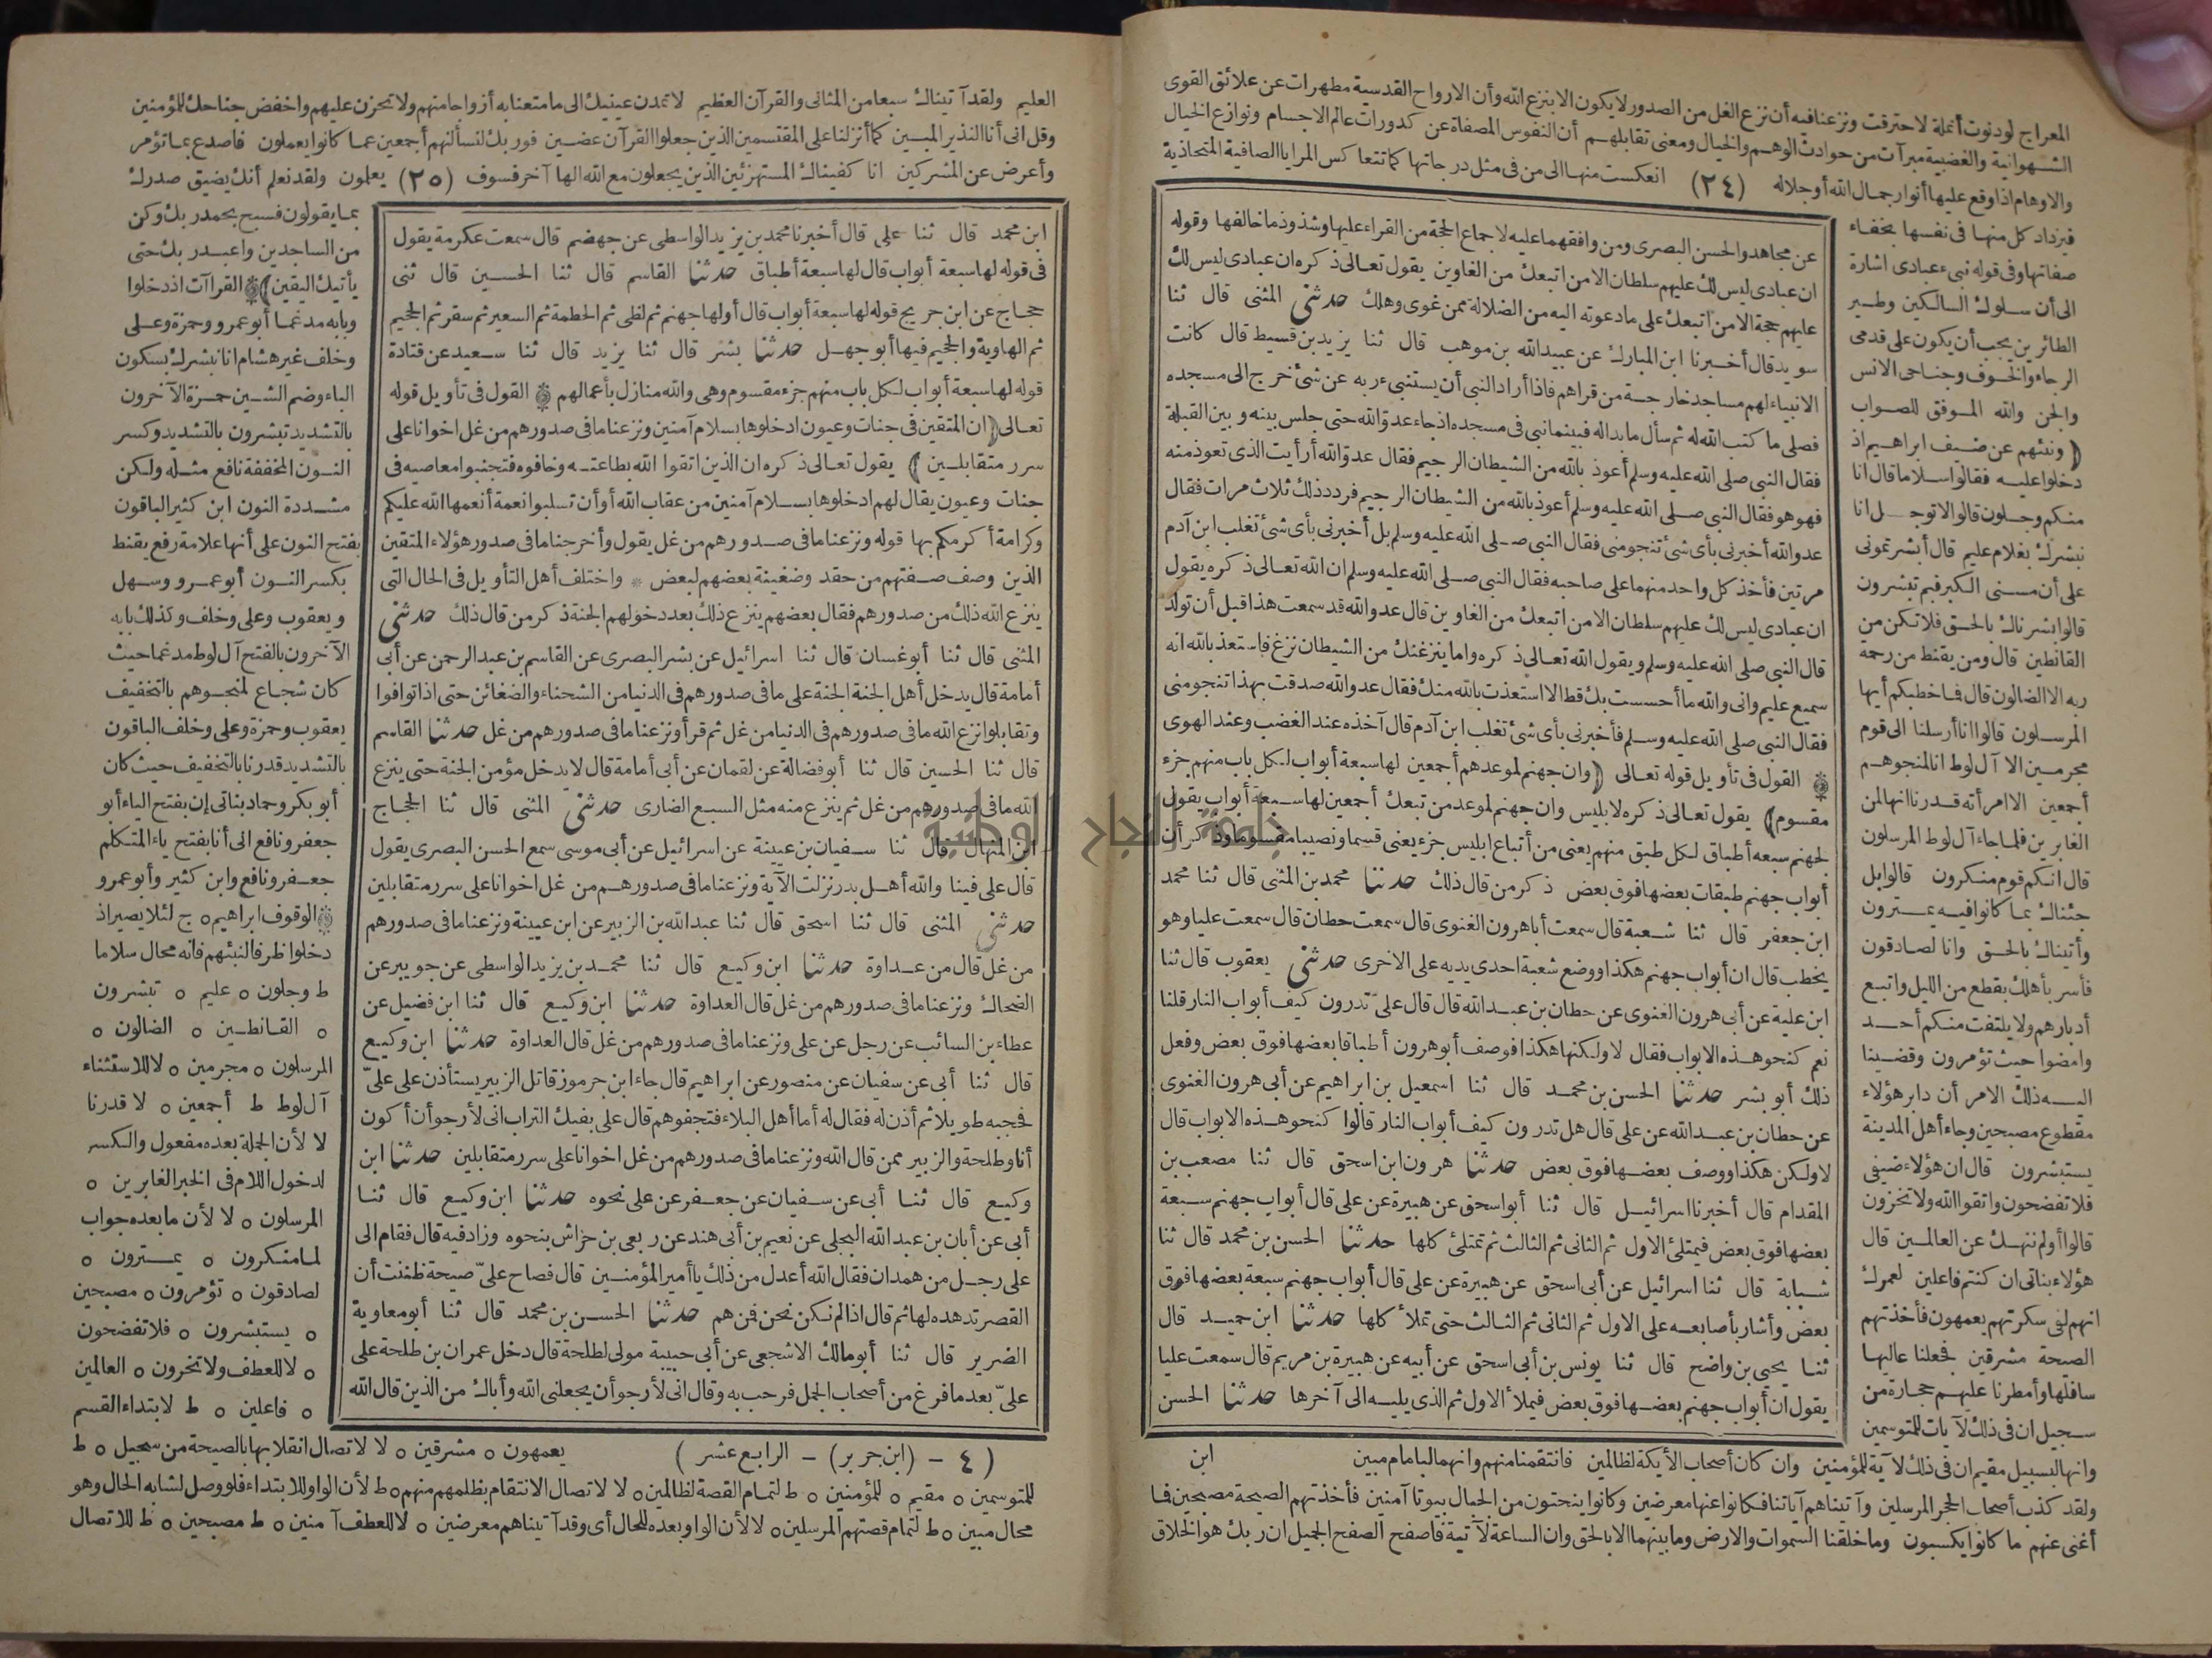 المعراج لودنوت أنملة لاحترقت ونزعنا فيه أن نزع الغل من الصدور لا يكون الا بنزع الله وأن الارواح القدسية مطهرات عن علائق القوى
الشهوانية والغضبية مبرآت من حوادث الوهم والخيال ومعنى تقابلهم أن النفوس المصفاة عن كدورات عالم الاجسام ونوازع الخيال
والاوهام اذا وقع عليها أنوار جمال الله أو جلاله (٢٤) انعكست منها الى من فى مثل درجاتها كما تتعاكس المرايا الصافية المتحاذية
فيزداد كل منها فى نفسها بخفاء
صفاتها وفى قوله نبىء عبادى اشارة
الى أن سلوك السالكين وطير
الطائرين يجب أن يكون على قدمى
الرجاء والخوف وجناحى الانس
والجن والله الموفق للصواب
(ونبئهم عن ضيف ابراهيم اذ
دخلوا عليه فقالوا سلاما قال انا
منكم وجلون قالوا لا توجل انا
نبشرك بغلام عليم قال أبشرتمونى
على أن مسنى الكبر فبم تبشرون
قالوا بشرناك بالحق فلا تكن من
القانطين قال ومن يقنط من رحمة
ربه الا الضالون قال فما خطبكم أيها
المرسلون قالوا انا أرسلنا الى قوم
مجرمين الا آل لوط انا لمنجوهم
أجمعين الا امرأته قدرنا انها لمن
الغابرين فلما جاء آل لوط المرسلون
قال انكم قوم منكرون قالوا بل
جئناك بما كانوا فيه يمترون
وأتيناك بالحق وانا لصادقون
فأسر بأهلك بقطع من الليل واتبع
أدبارهم ولا يلتفت منكم أحد
وامضوا حيث تؤمرون وقضينا
اليه ذلك الامر أن دابر هؤلاء
مقطوع مصبحين وجاء أهل المدينة
يستبشرون قال ان هؤلاء ضيفى
فلا تفضحون واتقوا الله ولا تخزون
قالوا أولم ننهك عن العالمين قال
هؤلاء بناتى ان كنتم فاعلين لعمرك
انهم لفى سكرتهم يعمهون فأخذتهم
الصيحة مشرقين فجعلنا عاليها
سافلها وأمطرنا عليهم حجارة من
سجيل ان فى ذلك لآيات للمتوسمين
عن مجاهد والحسن البصرى ومن وافقهما عليه لاجماع الحجة من القراء عليها وشذوذ ما خالفها وقوله
ان عبادى ليس لك عليهم سلطان الا من اتبعك من الغاوين يقول تعالى ذكره ان عبادى ليس لك
عليهم حجة الا من اتبعك على ما دعوته اليه من الضلالة ممن غوى وهلك حدثنى المثنى قال ثنا
سويد قال أخبرنا ابن المبارك عن عبيد الله بن موهب قال ثنا يزيد بن قسيط قال كانت
الانبياء لهم مساجد خارجة من قراهم فاذا أراد النبى أن يستنبىء ربه عن شىء خرج الى مسجده
فصلى ما كتب الله له ثم سأل ما بداله فبينما نبى فى مسجده اذ جاء عدو الله حتى جلس بينه وبين القبلة
فقال النبى صلى الله عليه وسلم أعوذ بالله من الشيطان الرجيم فقال عدو الله أرأيت الذى تعوذ منه
فهو هو فقال النبى صلى الله عليه وسلم أعوذ بالله من الشيطان الرجيم فردد ذلك ثلاث مرات فقال
عدو الله أخبرنى بأى شىء تنجو منى فقال النبى صلى الله عليه وسلم بل أخبرنى بأى شىء تغلب ابن آدم
مرتين فأخذ كل واحد منهما على صاحبه فقال النبى صلى الله عليه وسلم ان الله تعالى ذكره يقول
ان عبادى ليس لك عليهم سلطان الا من اتبعك من الغاوين قال عدو الله قد سمعت هذا قبل أن تولد
قال النبى صلى الله عليه وسلم ويقول الله تعالى ذكره واما ينزغنك من الشيطان نزغ فاستعذ بالله انه
سميع عليم وانى والله ما أحسست بك قط الا استعذت بالله منك فقال عدو الله صدقت بهذا تنجو منى
فقال النبى صلى الله عليه وسلم فأخبرنى بأى شىء تغلب ابن آدم قال آخذه عند الغضب وعند الهوى
القول فى تأويل قوله تعالى (وان جهنم لموعدهم أجمعين لها سبعة أبواب لكل باب منهم جزء
مقسوم) يقول تعالى ذكره لابليس وان جهنم لموعد من تبعك أجمعين لها سبعة أبواب يقول
لجهنم سبعه أطباق لكل طبق منهم يعنى من أتباع ابليس جزء يعنى قسما ونصيبا مقسوما وذكر أن
أبواب جهنم طبقات بعضها فوق بعض ذكر من قال ذلك حدثنا محمد بن المثنى قال ثنا محمد
ابن جعفر قال ثنا شعبة قال سمعت أبا هرون الغنوى قال سمعت حطان قال سمعت عليا وهو
يخطب قال ان أبواب جهنم هكذا ووضع شعبة احدى يديه على الاخرى حدثنى يعقوب قال ثنا
ابن علية عن أبى هرون الغنوى عن حطان بن عبد الله قال قال على تدرون كيف أبواب النار قلنا
نعم كنحو هذه الابواب فقال لا ولكنها هكذا فوصف أبو هرون أطباقا بعضها فوق بعض وفعل
ذلك أبو بشر حدثنا الحسن بن محمد قال ثنا اسمعيل بن ابراهيم عن أبى هرون الغنوى
عن حطان بن عبد الله عن على قال هل تدرون كيف أبواب النار قالوا كنحو هذه الابواب قال
لا ولكن هكذا ووصف بعضها فوق بعض حدثنا هرون ابن اسحق قال ثنا مصعب بن
المقدام قال أخبرنا اسرائيل قال ثنا أبو اسحق عن هبيرة عن على قال أبواب جهنم سبعة
بعضها فوق بعض فيمتلئ الاول ثم الثانى ثم الثالث ثم تمتلئ كلها حدثنا الحسن بن محمد قال ثنا
شبابة قال ثنا اسرائيل عن أبى اسحق عن هبيرة عن على قال أبواب جهنم سبعة بعضها فوق
بعض وأشار بأصابعه على الاول ثم الثانى ثم الثالث حتى تملأ كلها حدثنا ابن حميد قال
ثنا يحيى بن واضح قال ثنا يونس بن أبى اسحق عن أبيه عن هبيرة بن مريم قال سمعت عليا
يقول ان أبواب جهنم بعضها فوق بعض فيملأ الاول ثم الذى يليه الى آخرها حدثنا الحسن
وانها لبسبيل مقيم ان فى ذلك لآية للمؤمنين وان كان أصحاب الأيكة لظالمين فانتقمنا منهم وانهما لبامام مبين ابن
ولقد كذب أصحاب الحجر المرسلين وآتيناهم آياتنا فكانوا عنها معرضين وكانوا ينحتون من الجبال بيوتا آمنين فأخذتهم الصيحة مصبحين فما
أغنى عنهم ما كانوا يكسبون وما خلقنا السموات والارض وما بينهما الا بالحق وان الساعة لآتية فاصفح الصفح الجميل ان ربك هو الخلاق
العليم ولقد آتيناك سبعا من المثانى والقرآن العظيم لا تمدن عينيك الى ما متعنا به أزواجا منهم ولا تحزن عليهم واخفض جناحك للمؤمنين
وقل انى أنا النذير المبين كما أنزلنا على المقتسمين الذين جعلوا القرآن عضين فوربك لنسألنهم أجمعين عما كانوا يعملون فاصدع بما تؤمر
وأعرض عن المشركين انا كفيناك المستهزئين الذين يجعلون مع الله الها آخر فسوف (٢٥) يعلمون ولقد نعلم أنك يضيق صدرك
ابن محمد قال ثنا على قال أخبرنا محمد بن يزيد الواسطى عن جهضم قال سمعت عكرمة يقول
فى قوله لها سبعة أبواب قال لها سبعة أطباق حدثنا القاسم قال ثنا الحسين قال ثنى
حجاج عن ابن جريج قوله لها سبعة أبواب قال أولها جهنم ثم لظى ثم الحطمة ثم السعير ثم سقر ثم الجحيم
ثم الهاوية والجحيم فيها أبو جهل حدثنا بشر قال ثنا يزيد قال ثنا سعيد عن قتادة
قوله لها سبعة أبواب لكل باب منهم جزء مقسوم وهى والله منازل بأعمالهم القول فى تأويل قوله
تعالى (ان المتقين فى جنات وعيون ادخلوها بسلام آمنين ونزعنا ما فى صدورهم من غل اخوانا على
سرر متقابلين) يقول تعالى ذكره ان الذين اتقوا الله بطاعته وخافوه فتجنبوا معاصيه فى
جنات وعيون يقال لهم ادخلوها بسلام آمنين من عقاب الله أو أن تسلبوا نعمة أنعمها الله عليكم
وكرامة أكرمكم بها قوله ونزعنا ما فى صدورهم من غل يقول وأخرجنا ما فى صدور هؤلاء المتقين
الذين وصف صفتهم من حقد وضغينة بعضهم لبعض * واختلف أهل التأويل فى الحال التى
ينزع الله ذلك من صدورهم فقال بعضهم ينزع ذلك بعد دخولهم الجنة ذكر من قال ذلك حدثنى
المثنى قال ثنا أبو غسان قال ثنا اسرائيل عن بشر البصرى عن القاسم بن عبد الرحمن عن أبى
أمامة قال يدخل أهل الجنة الجنة على ما فى صدورهم فى الدنيا من الشحناء والضغائن حتى اذا توافوا
وتقابلوا نزع الله ما فى صدورهم فى الدنيا من غل ثم قرأ ونزعنا ما فى صدورهم من غل حدثنا القاسم
قال ثنا الحسين قال ثنا أبو فضالة عن لقمان عن أبى أمامة قال لا يدخل مؤمن الجنة حتى ينزع
الله ما فى صدورهم من غل ثم ينزع منه مثل السبع الضارى حدثنى المثنى قال ثنا الحجاج
ابن المنهال قال ثنا سفيان بن عيينة عن اسرائيل عن أبى موسى سمع الحسن البصرى يقول
قال على فينا والله أهل بدر نزلت الآية ونزعنا ما فى صدورهم من غل اخوانا على سرر متقابلين
حدثنى المثنى قال ثنا اسحق قال ثنا عبد الله بن الزبير عن ابن عيينة ونزعنا ما فى صدورهم
من غل قال من عداوة حدثنا ابن وكيع قال ثنا محمد بن يزيد الواسطى عن جويبر عن
الضحاك ونزعنا ما فى صدورهم من غل قال العداوة حدثنا ابن وكيع قال ثنا ابن فضيل عن
عطاء بن السائب عن رجل عن على ونزعنا ما فى صدورهم من غل قال العداوة حدثنا ابن وكيع
قال ثنا أبى عن سفيان عن منصور عن ابراهيم قال جاء ابن جرموز قاتل الزبير يستأذن على علىّ
فحجبه طويلا ثم أذن له فقال له أما أهل البلاء فتجفوهم قال على بفيك التراب انى لأرجو أن أكون
أنا وطلحة والزبير ممن قال الله ونزعنا ما فى صدورهم من غل اخوانا على سرر متقابلين حدثنا ابن
وكيع قال ثنا أبى عن سفيان عن جعفر عن على نحوه حدثنا ابن وكيع قال ثنا
أبى عن أبان بن عبد الله البجلى عن نعيم بن أبى هند عن ربعى بن خراش بنحوه وزاد فيه قال فقام الى
على رجل من همدان فقال الله أعدل من ذلك يا أمير المؤمنين قال فصاح علىّ صيحة ظننت أن
القصر تدهده لها ثم قال اذا لم نكن نحن فمن هم حدثنا الحسن بن محمد قال ثنا أبو معاوية
الضرير قال ثنا أبو مالك الاشجعى عن أبى حبيبة مولى لطلحة قال دخل عمران بن طلحة على
علىّ بعد ما فرغ من أصحاب الجمل فرحب به وقال انى لأرجو أن يجعلنى الله وأباك من الذين قال الله
بما يقولون فسبح بحمد ربك وكن
من الساجدين واعبد ربك حتى
يأتيك اليقين) القراآت اذ دخلوا
وبابه مدغما أبو عمرو وحمزة وعلى
وخلف غير هشام انا نبشرك بسكون
الباء وضم الشين حمزة الآخرون
بالتشديد تبشرون بالتشديد وكسر
النون المخففة نافع مثله ولكن
مشددة النون ابن كثير الباقون
بفتح النون على أنها علامة رفع يقنط
بكسر النون أبو عمرو وسهل
ويعقوب وعلى وخلف وكذلك بابه
الآخرون بالفتح آل لوط مدغما حيث
كان شجاع لمنجوهم بالتخفيف
يعقوب وحمزة وعلى وخلف الباقون
بالتشديد قدرنا بالتخفيف حيث كان
أبو بكر وحماد بناتى إن بفتح الياء أبو
جعفر ونافع انى أنا بفتح ياء المتكلم
جعفر ونافع وابن كثير وأبو عمرو
الوقوف ابراهيم ه ج لئلا يصير اذ
دخلوا ظرفا لنبئهم فانه محال سلاما
ط وجلون ه عليم ه تبشرون
ه القانطين ه الضالون ه
المرسلون ه مجرمين ه لا للاستثناء
آل لوط ط أجمعين ه لا قدرنا
لا لأن الجملة بعده مفعول والكسر
لدخول اللام فى الخبر الغابرين ه
المرسلون ه لا لأن ما بعده جواب
لما منكرون ه يمترون ه
لصادقون ه تؤمرون ه مصبحين
ه يستبشرون ه فلا تفضحون
ه لا للعطف ولا تخزون ه العالمين
ه فاعلين ه ط لابتداء القسم
(٤ - (ابن جرير) - الرابع عشر) يعمهون ه مشرقين ه لا لاتصال انقلابها بالصيحة من سجيل ه ط
للمتوسمين ه مقيم ه للمؤمنين ه ط لتمام القصة لظالمين ه لا لاتصال الانتقام بظلمهم منهم ه ط لأن الواو للابتداء فلو وصل لشابه الحال وهو
محال مبين ه ط لتمام قصتهم المرسلين ه لا لأن الواو بعده للحال أى وقد آتيناهم معرضين ه لا للعطف آمنين ه ط مصبحين ه ط للاتصال
جامعة النجاح الوطنية